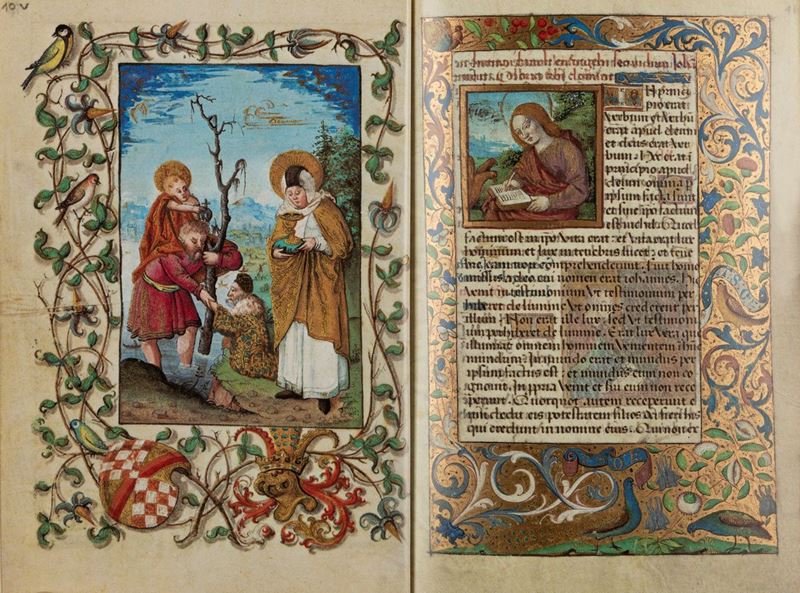 10 v
In princi
pio erat
verbum et verbu
erat apud deum
et deus erat ver
bum. Hoc erat i
principio apud
deum omnia p
ipsum facta sunt
et sine ipo factu
est nichil. Quod
factum est in ipo vita erat: et vita erat lux
hominum et lux in tenebris lucet: et tene
bre eam non comprehenderunt. Fuit homo
missus a deo cui nomen erat iohannes. Hic
venit in testimonium vt testimonium per
hiberet de lumine vt omnes crederent per
illum. Non erat ille lux sed vt testimoni
um perhiberet de lumine. Erat lux vera que
illuminat omnem hominem venientem i hunc
mundum. In mundo erat et mundus per
ipsum factus est: et mundus eum non co
gnouit. In ppria venit et sui eum non rece
perunt. Quotquot autem receperunt e
um dedit eis potestatem filios dei fieri his
qui credunt in nomine eius. Qui non ex